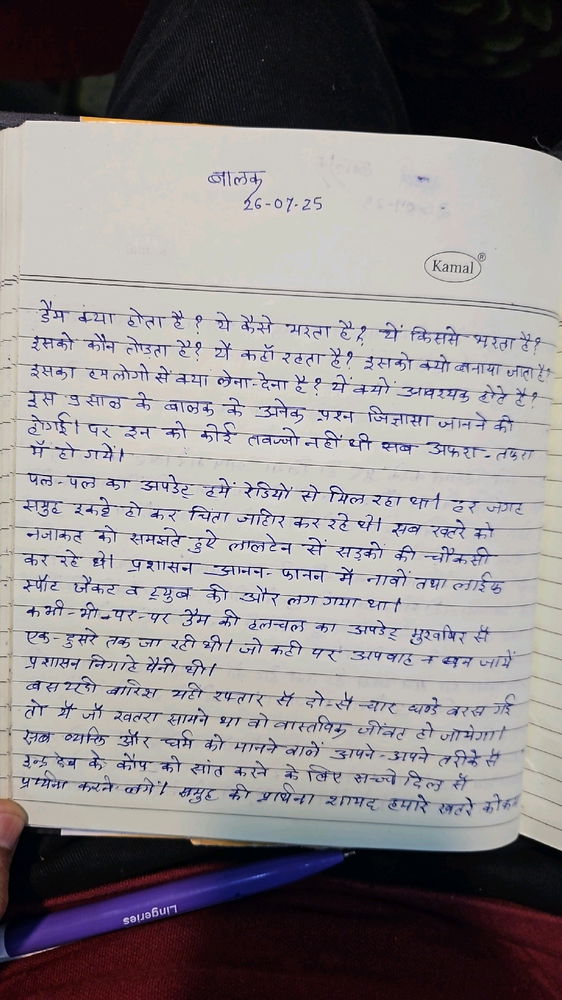 बालक
26-07-25
Kamal®
डैम क्या होता है? ये कैसे भरता है? यें किससे भरता है?
इसको कौन तोडता है? यें कहाँ रहता है? इसको क्यों बनाया जाता है?
इसका हम लोगों से क्या लेना-देना है? ये क्यों आवश्यक होते है?
इस 9 साल के बालक के अनेक प्रश्न जिज्ञासा जानने की
होगई। पर इन को कोई तवज्जो नहीं थी सब अफरा-तफरा
में हो गयें।
पल-पल का अपडेट हमें रेडियों से मिल रहा था। हर जगह
समुह इकट्ठे हो कर चिंता जाहिर कर रहे थे। सब खतरे को
नजाकत को समझते हुऐ लालटेन सें सड़को की चौकसी
कर रहे थे। प्रशासन आनन-फानन में नावों तथा लाईफ
स्पॉट जैकट व ट्युब की और लग गया था।
कभी-भी-पर-पर डैम की हलचल का अपडेट मुखबिर सें
एक-दुसरे तक जा रही थी। जो कही पर अपवाह न बन जायें
प्रशासन निगाहे पैनी थी।
बस यही बारिश यही रफ्तार सें दो-सें-चार घण्डे बरस गई
तो यें जो खतरा सामने था वो वास्तविक जींवट हो जायेगा।
व्यक्ति और धर्म को मानने वालें अपने-अपने तरीके सें
इन्द्र देव के कौप को सांत करने के लिए सच्चे दिल सें
प्रार्थना करने लगें। समुह की प्रार्थना शायद हमारे खतरे को
Lingeries